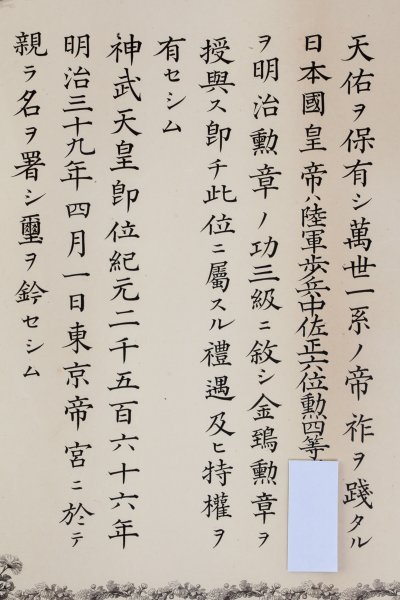 天佑ヲ保有シ萬世一系ノ帝祚ヲ踐タル
日本國皇帝ハ陸軍歩兵中佐正六位勲四等
ヲ明治勲章ノ功三級ニ敘シ金鵄勲章ヲ
授與ス卽チ此位ニ屬スル禮遇及ヒ特權ヲ
有セシム
神武天皇卽位紀元二千五百六十六年
明治三十九年四月一日東京帝宮ニ於テ
親ラ名ヲ署シ璽ヲ鈐セシム